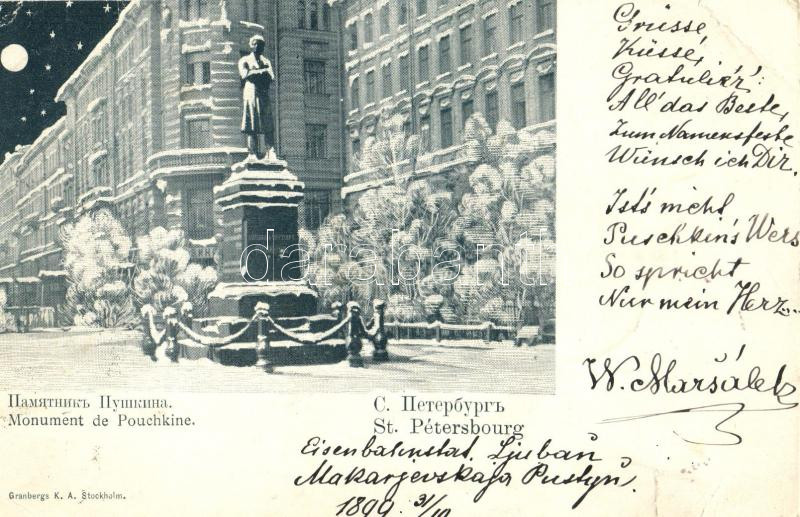 Grüsse,
Küsse,
Gratulir!
All' das Beste,
Zum Namensfeste
Wünsch ich Dir.
Ist's nicht
Puschkin's Wers
So spricht
Nur mein Herz...
W. Maršálek
Памятникъ Пушкина.
Monument de Pouchkine.
С. Петербургъ
St. Pétersbourg
Eisenbahnstat. Ljubań
Makarjevskaja Pustyń.
1899 31/10
Granbergs K. A. Stockholm.
darabanth